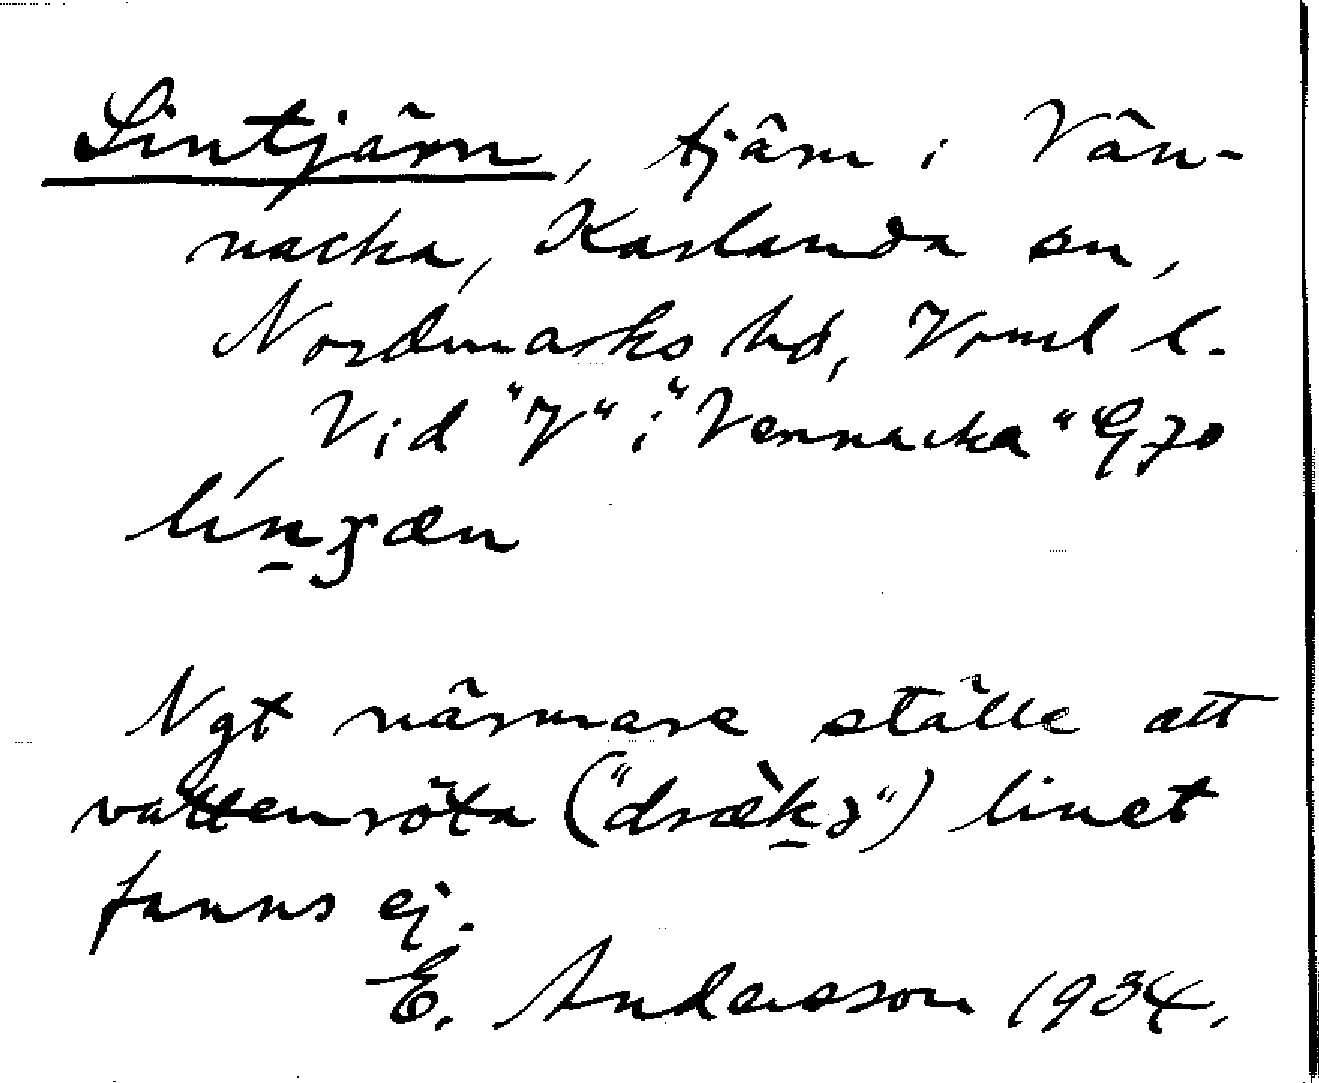 Lintjärn, tjärn i Vän-
nacka, Karlanda sn,
Nordmarks hd, Vrml l.
Vid "V" i "Vennacka" G 70
Ngt närmare ställe att
vattenröta ("dræ̀kə") linet
fanns ej.
E. Andersson 1934.